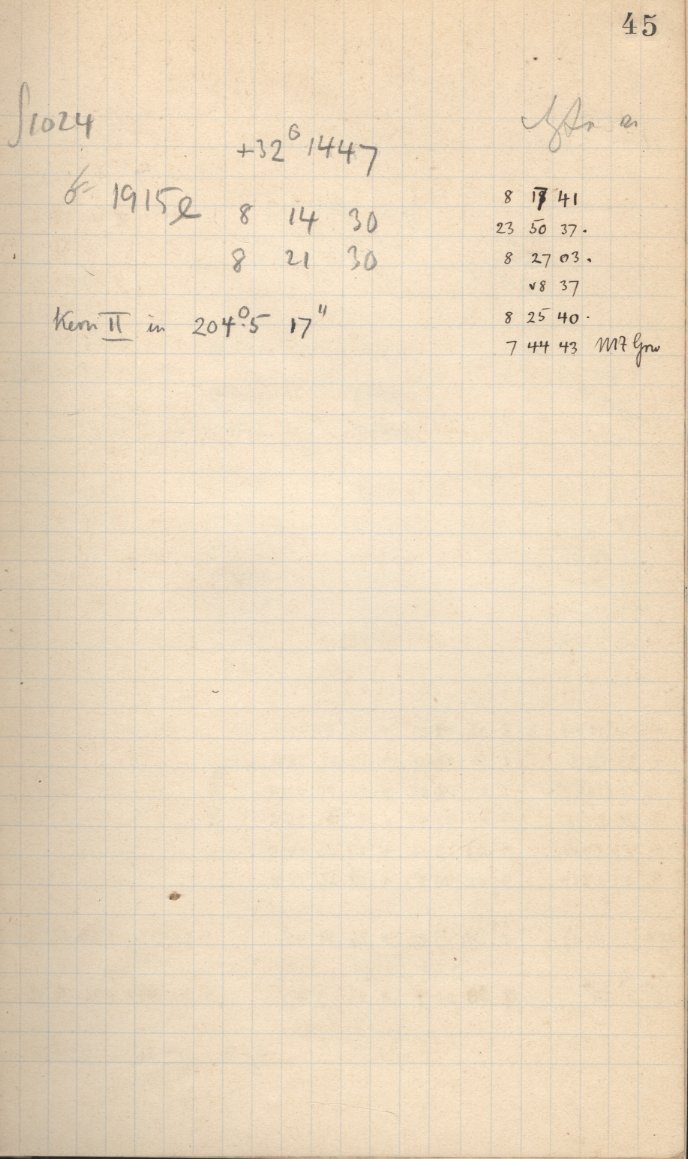 45
∫1024
+32° 1447
1915e
8 14 30
8 21 30
Kern II in 204°.5 17"
8 17 41
23 50 37.
8 27 03.
8 37
8 25 40.
7 44 43 MZ